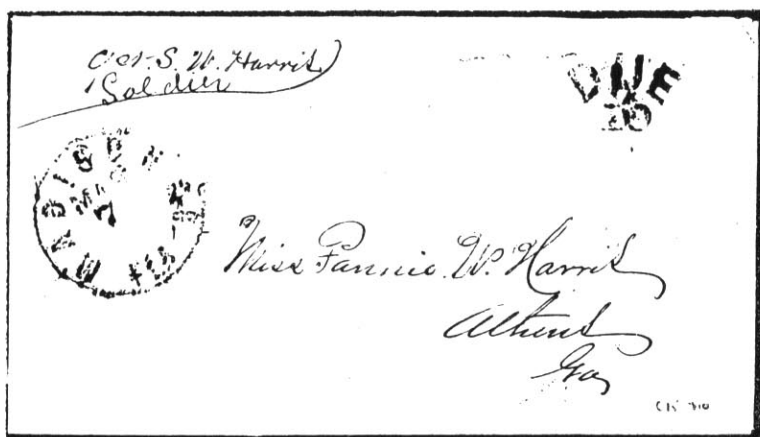 S. W. Harris
Soldier
DUE
10
MADISON
MAR
7
Miss Fannie W. Harris
Athens
Ga